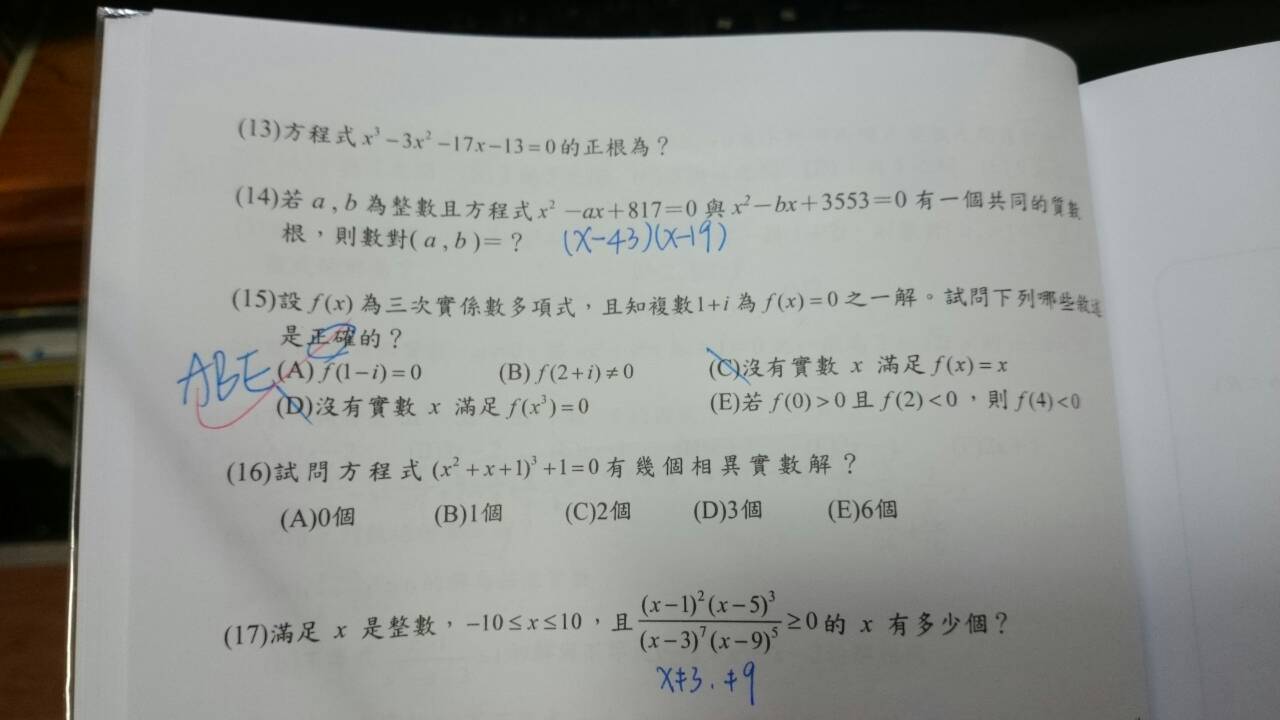 (13)方程式 x³－3x²－17x－13＝0 的正根為？
(14)若 a , b 為整數且方程式 x² －ax＋817＝0 與 x²－bx＋3553＝0 有一個共同的質數
根，則數對( a , b )＝？ (x－43)(x－19)
(15)設 f(x) 為三次實係數多項式，且知複數1+i 為 f(x)＝0 之一解。試問下列哪些敘述
是正確的？
ABE
(A) f(1－i)＝0 (B) f(2＋i)≠0 (C)沒有實數 x 滿足 f(x)＝x
(D)沒有實數 x 滿足 f(x³)＝0 (E)若 f(0)＞0 且 f(2)＜0，則 f(4)＜0
(16)試問方程式 (x²＋x＋1)³＋1＝0 有幾個相異實數解？
(A)0個 (B)1個 (C)2個 (D)3個 (E)6個
(17)滿足 x 是整數，－10≤x≤10，且 (x－1)²(x－5)³/(x－3)⁷(x－9)⁵ ≥0 的 x 有多少個？
x≠3. ≠9